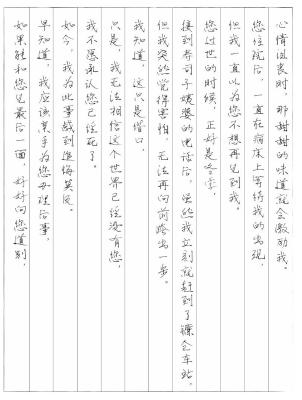 心情沮丧时，那甜甜的味道就会激励我。
您住院后，一直在病床上等待我的出现，
但我一直以为您不想再见到我。
您过世的时候，正好是冬季，
接到寿司子婆婆的电话后，虽然我立刻就赶到了镰仓车站，
但我突然觉得害怕，无法再向前踏出一步。
我知道，这只是借口，
只是，我无法相信这个世界已经没有您，
我不愿承认您已经死了。
如今，我为此事感到追悔莫及。
早知道，我应该亲手为您办理后事，
如果能和您见最后一面，好好向您道别，